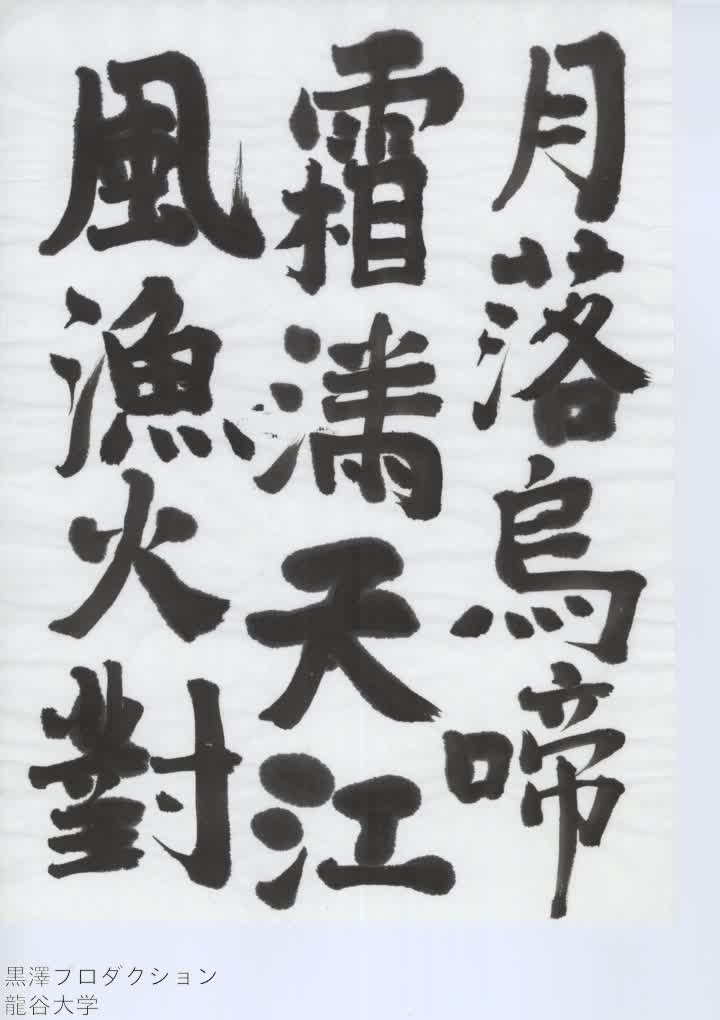 月落烏啼
霜満天江
風漁火對
黒澤プロダクション
龍谷大学